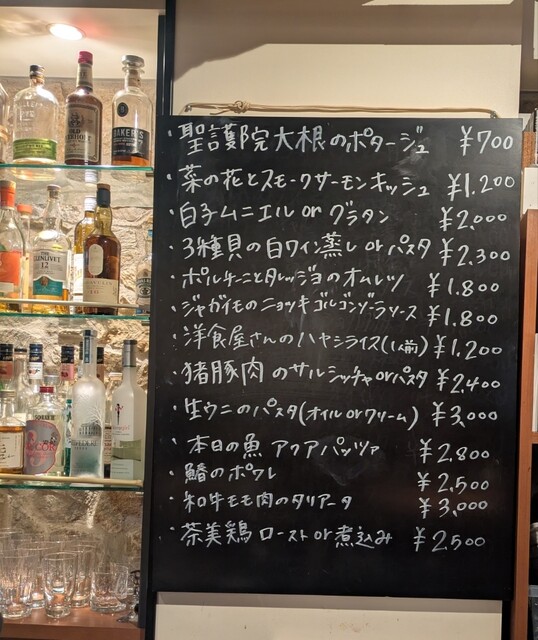 ・聖護院大根のポタージュ ¥700
・菜の花とスモークサーモンキッシュ ¥1.200
・白子ムニエル or グラタン ¥2,000
・3種貝の白ワイン蒸し or パスタ ¥2,300
・ポルチーニとタレッジョのオムレツ ¥1.800
・ジャガイモのニョッキゴルゴンゾーラソース ¥1.800
・洋食屋さんのハヤシライス(1人前) ¥1,200
・猪豚肉のサルシッチャorパスタ ¥2,400
・生ウニのパスタ(オイル or クリーム) ¥3,000
・本日の魚 アクアパッツァ ¥2,800
・鰆のポワレ ¥2,500
・和牛モモ肉のタリアータ ¥3,000
・茶美鶏 ローストor煮込み ¥2,500
MAKER'S
GLENLIVET
12